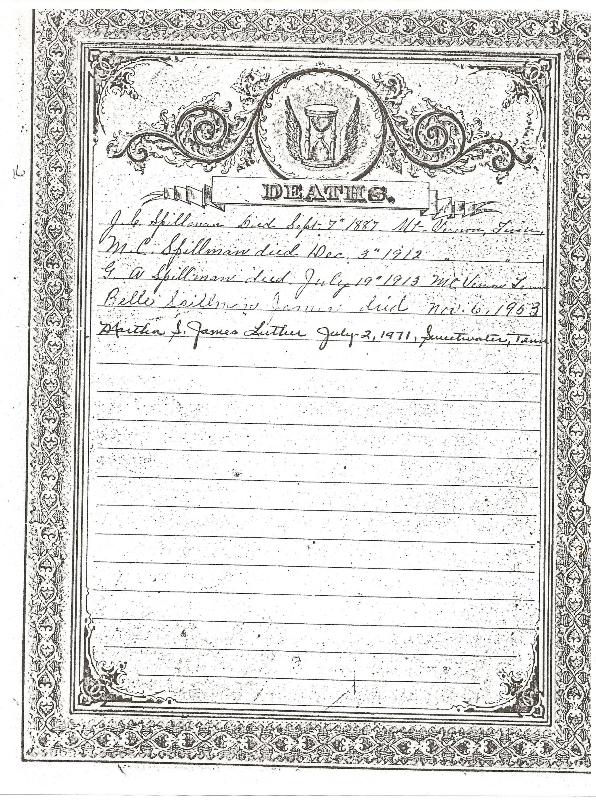 DEATHS.
J. C. Spillman Died Sept. 7th 1887 Mt. Vernon, Tenn
M. C. Spillman died Dec, 3rd 1912 " "
G. A Spillman died July 19th 1913 Mt Vernon Tenn
Belle Spillman James died Nov. 6, 1953
Martha S. James Luther July-2, 1971, Sweetwater, Tenn